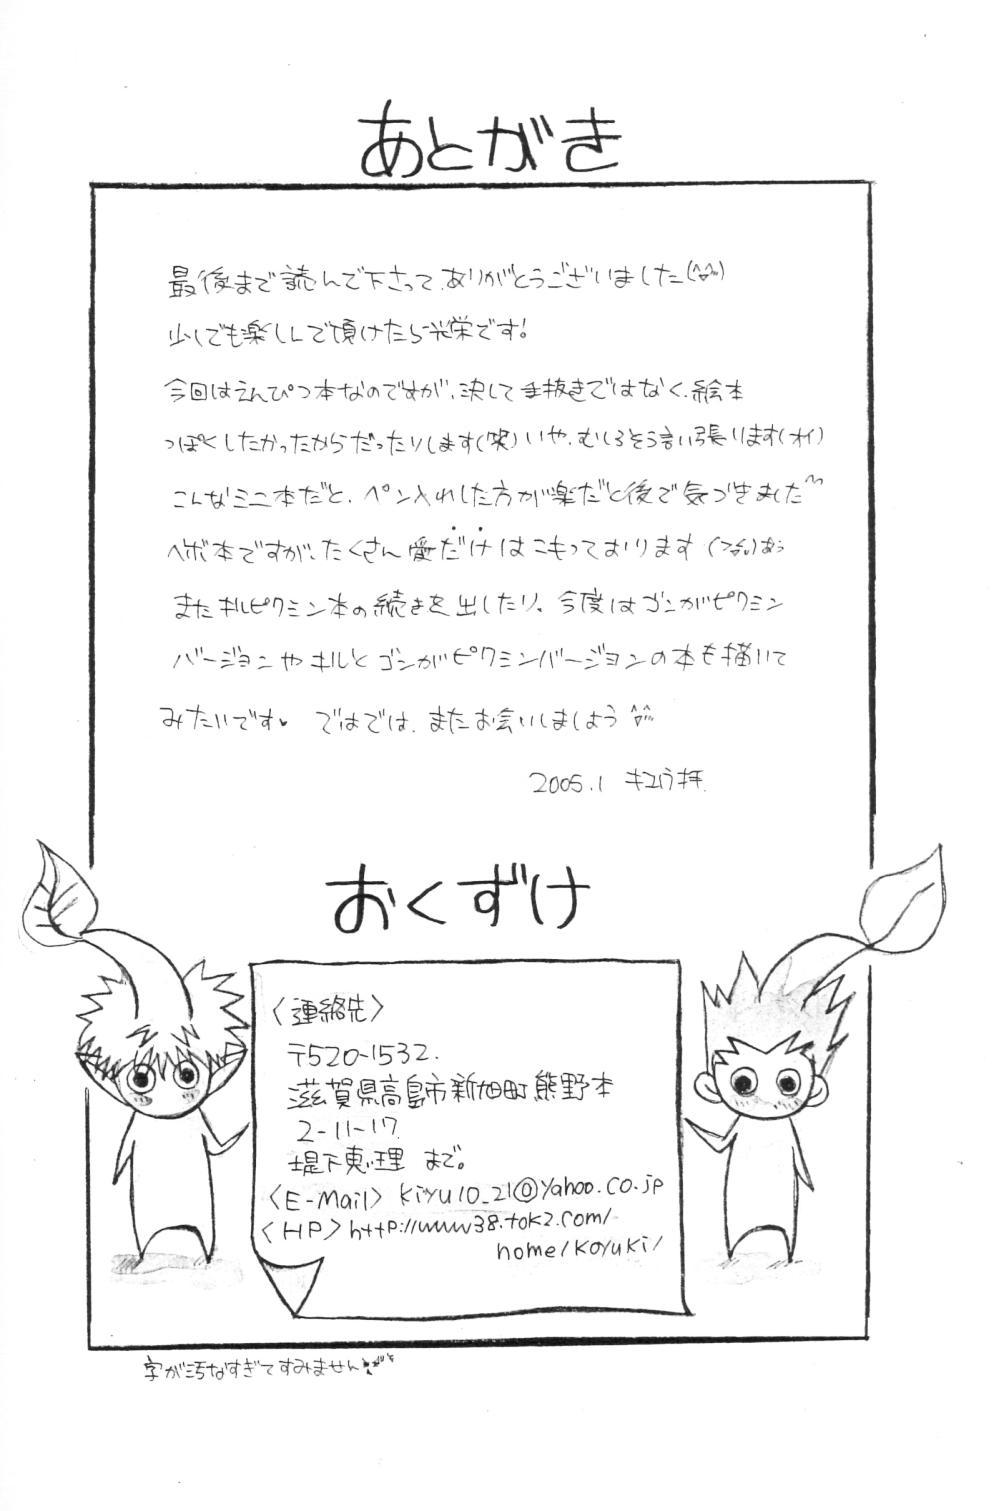 あとがき
最後まで読んで下さって、ありがとうございました(^^)
少しでも楽しんで頂けたら光栄です!
今回はえんぴつ本なのですが、決して手抜きではなく、絵本
っぽくしたかったからだったりします(笑)いや、むしろそう言い張ります(オイ)
こんなミニ本だと、ペン入れした方が楽だと後で気づきました^^
ヘボ本ですが、たくさん愛だけはこもっております
またキルピクミン本の続きを出したり、今度はゴンがピクミン
バージョンやキルとゴンがピクミンバージョンの本も描いて
みたいです♥ ではでは、またお会いしましょう^^
2005.1 キユウ拝
おくずけ
〈連絡先〉
〒520-1532.
滋賀県高島市新旭町熊野本
2-11-17
堤下恵理 まで。
〈E-Mail〉 kiyu10_21@yahoo.co.jp
〈HP〉http://www38.tok2.com/
home/koyuki/
字が汚なすぎてすみません